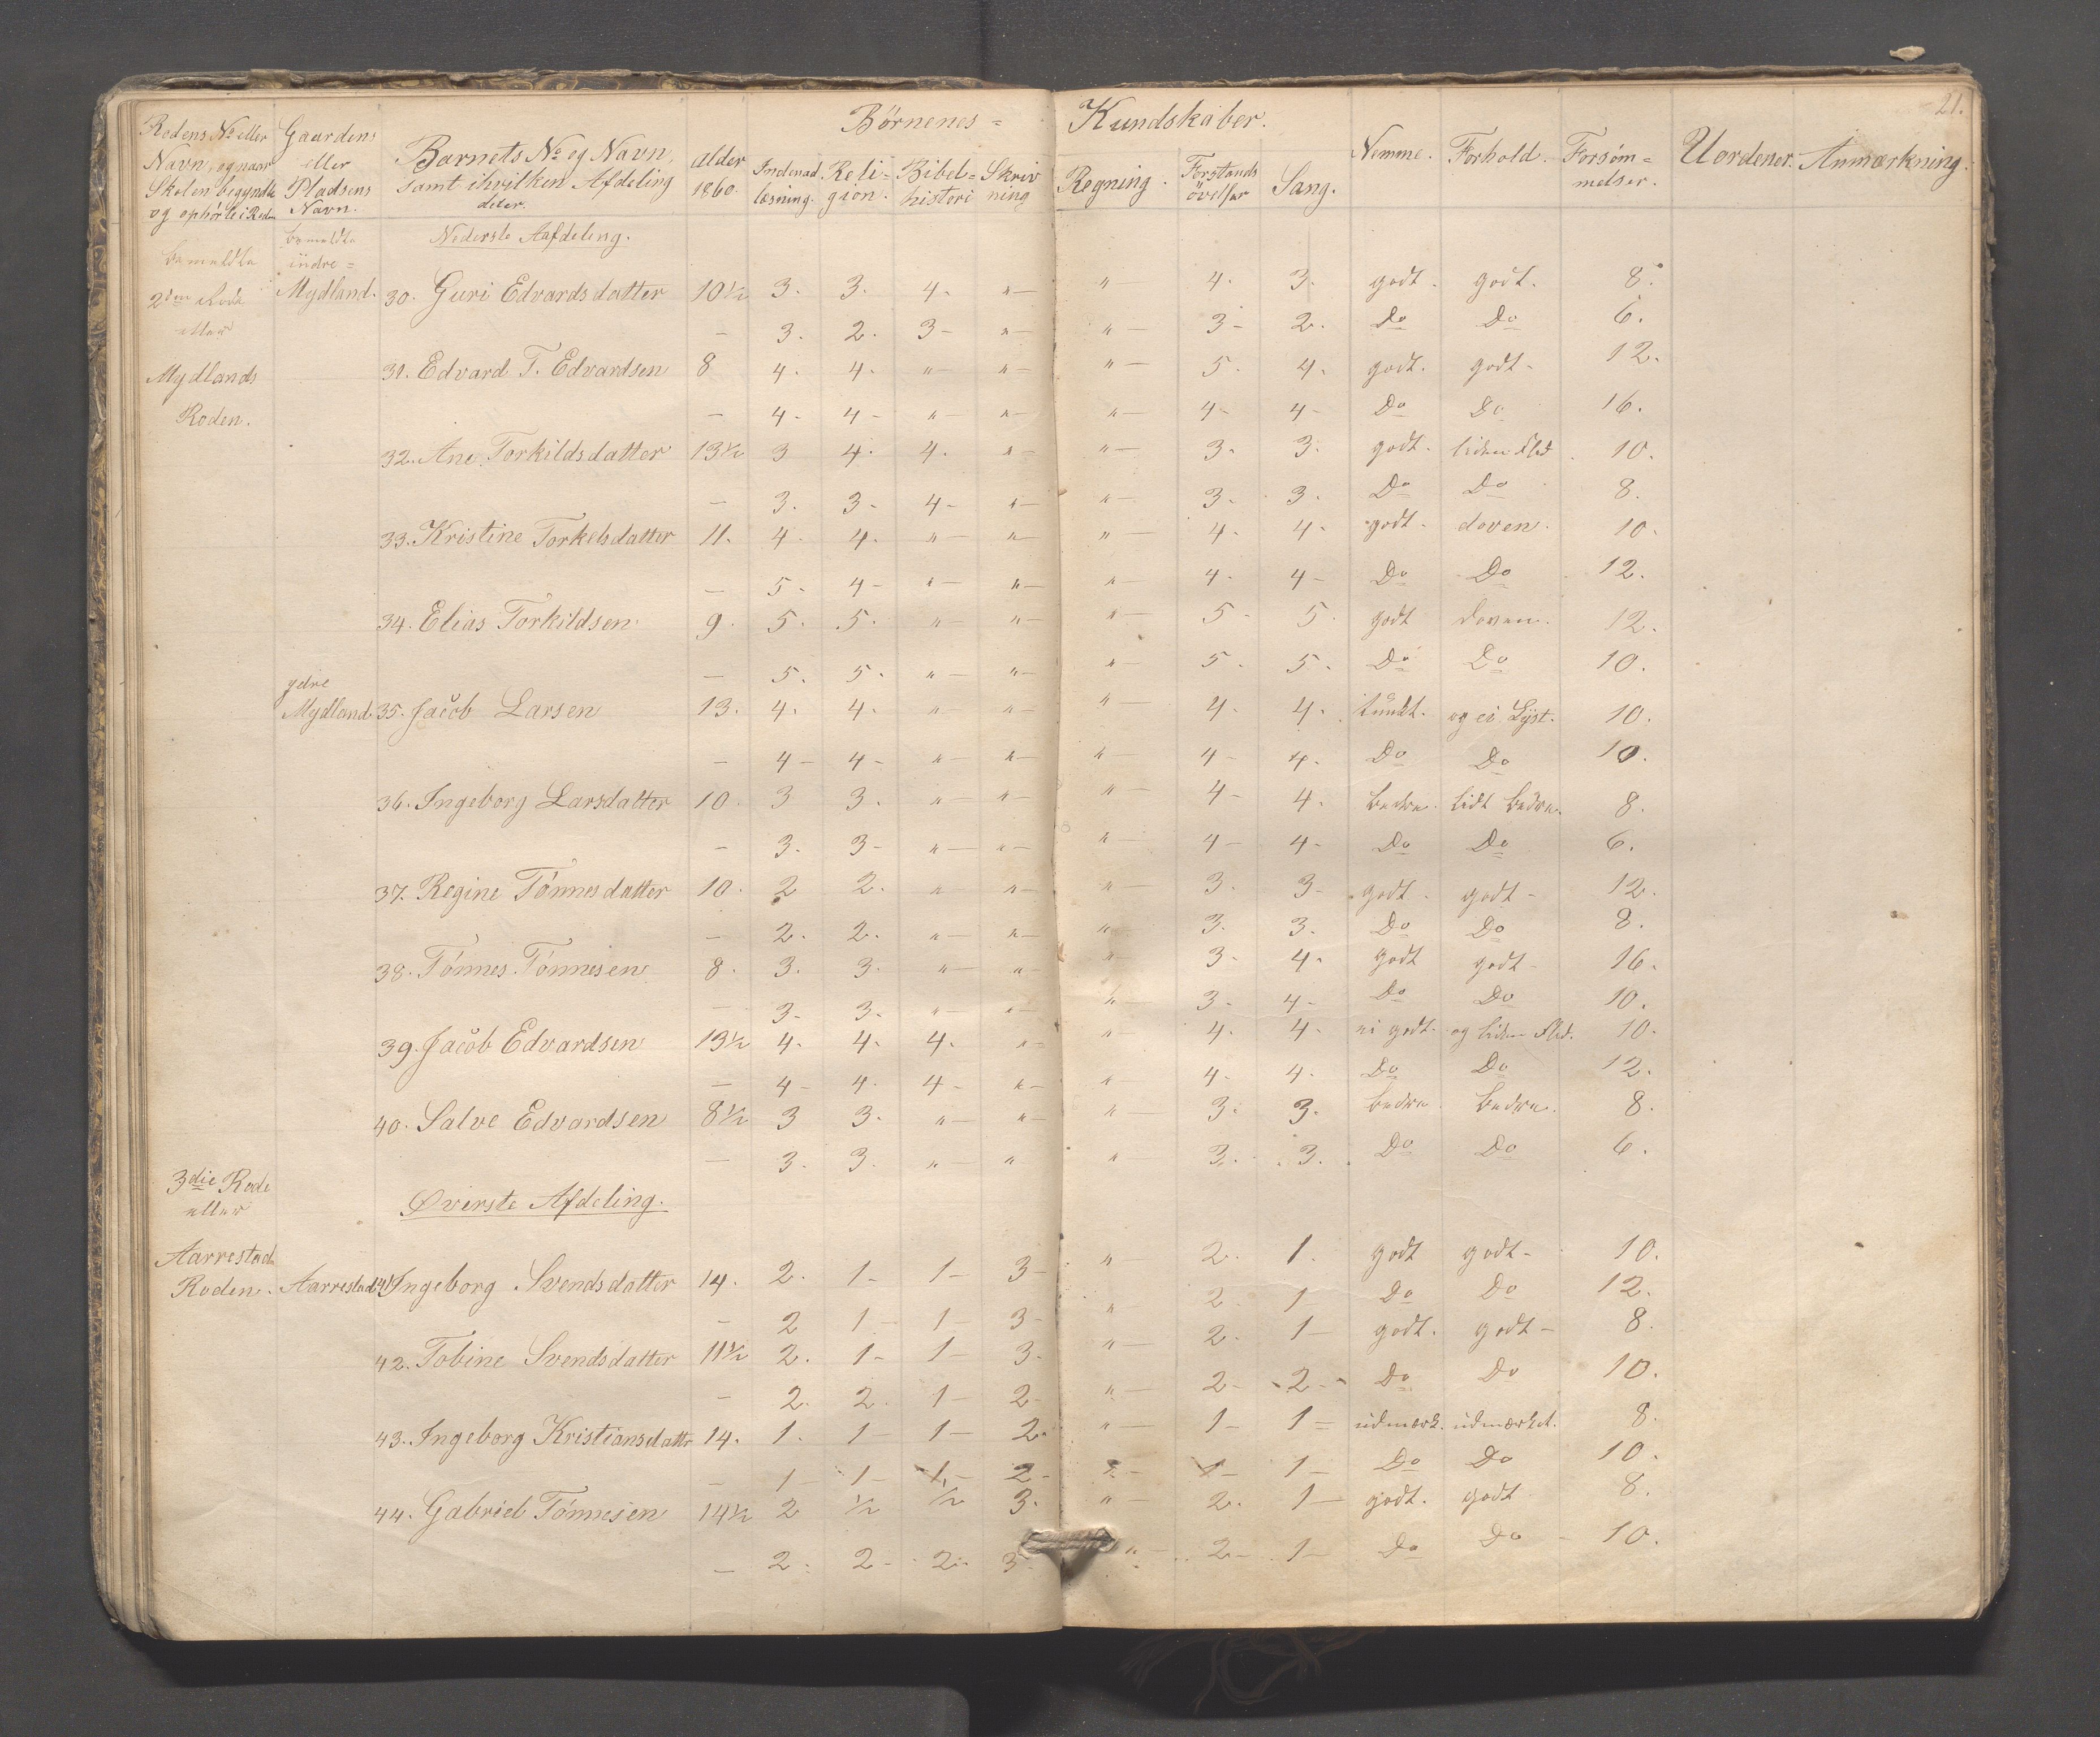 21.
Børnenes = Kundskaber.
Rodens No eller Navn, og naar Skolen begyndte og ophørte i Roden
Gaardens eller Pladsens Navn.
Barnets No og Navn, samt i hvilken Afdeling deter.
Alder 1860.
Indenad læsning.
Reli= gion.
Bibel= histori
Skriv ning
Regning.
Forstands øvelser
Sang.
Nemme.
Forhold.
Forsøm= melser.
Uordener.
Anmærkning.
Nederste Aafdeling.
bemeldte 2den Rode eller Mydlands Roden.
bemeldte indre= Mydland.
30. Guri Edvardsdatter 10½ 3. 3. 4. "— "— 4. 3. godt. godt. 8.
— 3. 2. 3- "— "— 3- 2. Do Do 6.
31. Edvard T. Edvardsen 8 4. 4. "— "— "— 5. 4. godt. godt- 12.
— 4- 4- "— "— "— 4- 4- Do Do 16.
32. Ane Torkildsdatter 13½ 3 4. 4. "— "— 3. 3. godt. liden Flid 10.
— 3. 3- 4- "— "— 3. 3. Do Do 8.
33. Kristine Torkelsdatter 11. 4. 4. "— "— "— 4. 4. godt. doven. 10.
— 5- 4- "— "— "— 4. 4- Do Do 12.
34. Elias Torkildsen 9. 5. 5. "— "— "— 5- 5. godt doven. 12.
— 5. 5. "— "— "— 5. 5. Do Do 10.
ydre Mydland 35. Jacob Larsen 13. 4. 4. "— "— "— 4. 4. tundt. og ei Lyst. 10.
— 4- 4- "— "— "— 4- 4. Do Do 10.
36. Ingeborg Larsdatter 10. 3 3. "— "— "— 4- 4. bedre. lidt bedre. 8.
— 3. 3- "— "— "— 4- 4- Do Do 6.
37. Regine Tønnesdatter 10. 2 2. "— "— "— 3. 3- godt- godt- 12.
— 2. 2. "— "— "— 3. 3. Do Do 8.
38. Tønnes Tønnesen 8. 3. 3. "— "— "— 3- 4. godt godt- 16.
— 3- 3. "— "— "— 3- 4- Do Do 10.
39. Jacob Edvardsen 13½ 4. 4. 4. "— "— 4. 4- ei godt. og liden Flid. 10.
— 4- 4. 4- "— "— 4. 4. Do Do 12.
40. Salve Edvardsen 8½ 3 3. "— "— "— 3. 3. bedre. bedre. 8.
— 3. 3. "— " "— 3. 3. Do Do 6.
3die Rode eller Aarrestad Roden.
Øverste Afdeling.
Aarrestad 41 Ingeborg Svendsdatter 14. 2. 1- 1- 3- "— 2. 1. godt godt- 10.
— 2 1- 1- 3- " 2 1- Do Do 12.
42. Tobine Svendsdatter 11½ 2. 1- 1- 3. "— 2. 1- godt. godt- 8.
— 2. 2. 1- 2- "— 2- 2- Do Do 10.
43. Ingeborg Kristiansdatter 14. 1. 1- 1- 2. "— 1- 1= udmærk. udmærket. 8.
— 1- 1- 1.- 2- "— 1- 1- Do Do 10.
44. Gabriel Tønnesen 14½ 2 ½ ½ 3. "— 2. 1- godt. godt 8.
— 2. 2- 2- 3. "— 2- 1- Do Do 10.